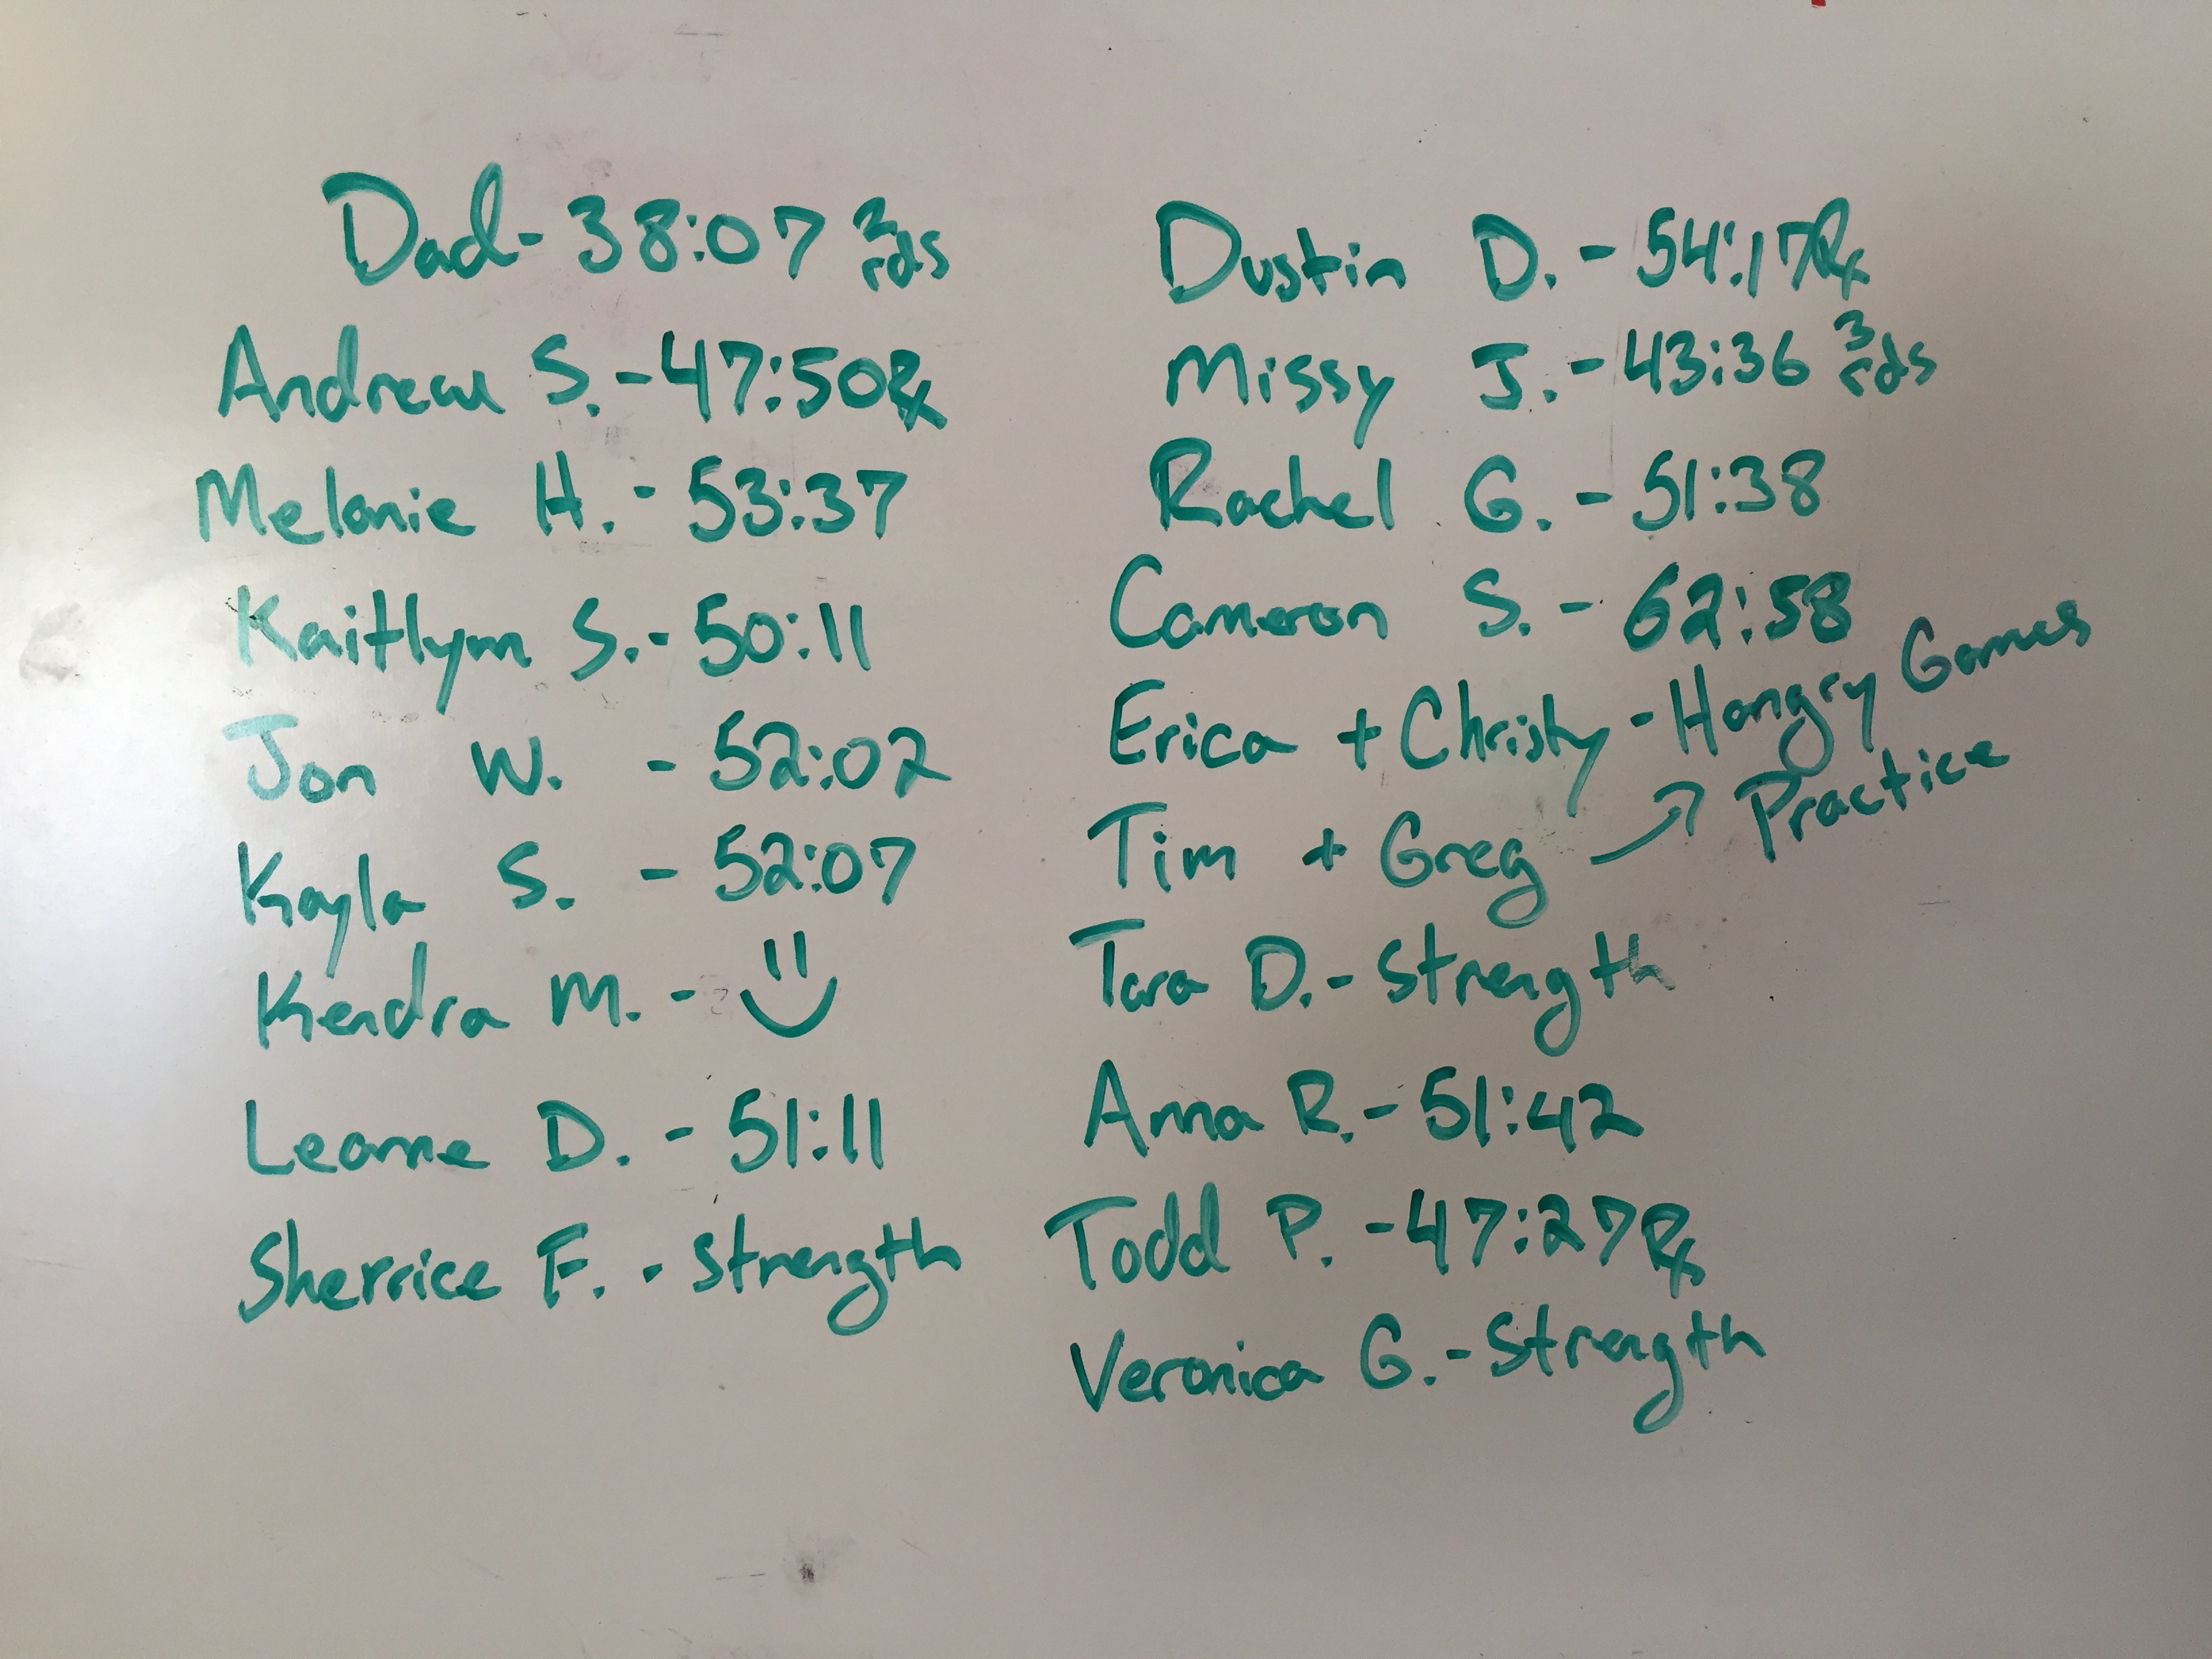 Dad - 38:07 2 rds
Andrew S. - 47:50 Rx
Melanie H. - 53:37
Kaitlynn S. - 50:11
Jon W. - 52:02
Kayla S. - 52:07
Kendra M. -
Leanne D. - 51:11
Sherrice F. - Strength
Dustin D. - 54:17 Rx
Missy J. - 43:36 3 rds
Rachel G. - 51:38
Cameron S. - 62:58
Erica + Christy - Hangry Games
Practice
Tim + Greg →
Tara D. - Strength
Anna R. - 51:42
Todd P. - 47:27 Rx
Veronica G. - Strength